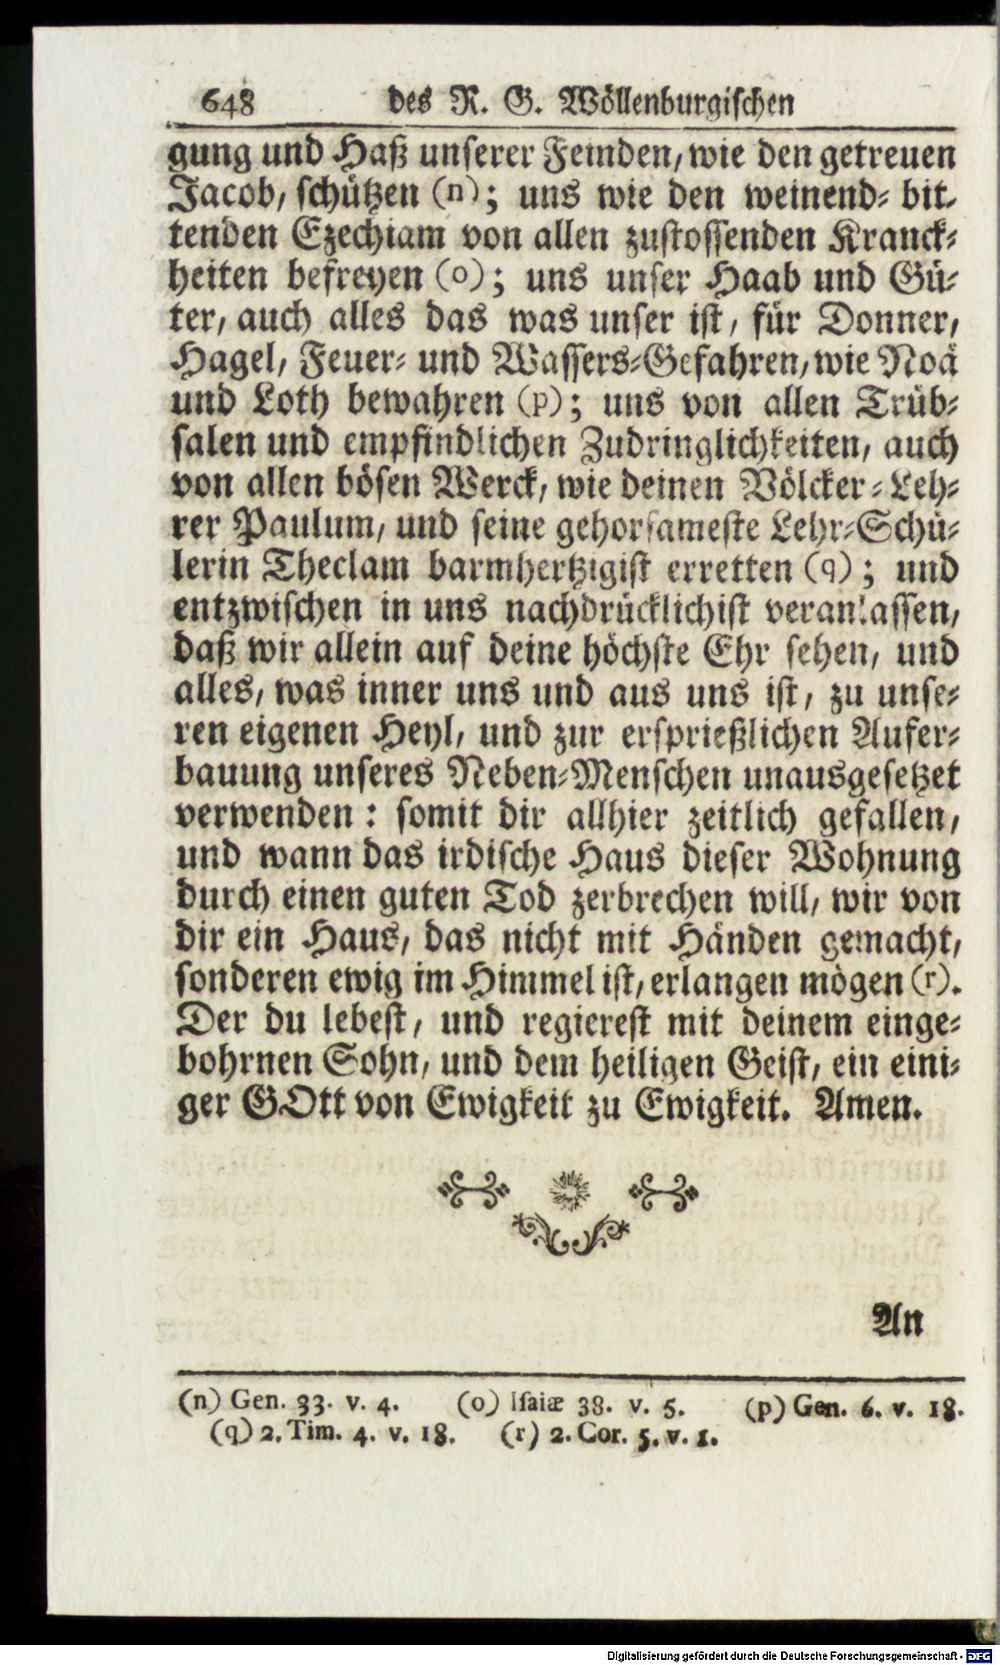 648 des R. G. Wöllenburgischen
gung und Haß unserer Feinden, wie den getreuen
Jacob, schützen (n); uns wie den weinend-bit-
tenden Ezechiam von allen zustossenden Kranck-
heiten befreyen (o); uns unser Haab und Gü-
ter, auch alles das was unser ist, für Donner,
Hagel, Feuer- und Wassers-Gefahren, wie Noä
und Loth bewahren (p); uns von allen Trüb-
salen und empfindlichen Zudringlichkeiten, auch
von allen bösen Werck, wie deinen Völcker-Leh-
rer Paulum, und seine gehorsameste Lehr-Schü-
lerin Theclam barmhertzigist erretten (q); und
entzwischen in uns nachdrücklichist veranlassen,
daß wir allein auf deine höchste Ehr sehen, und
alles, was inner uns und aus uns ist, zu unse-
ren eigenen Heyl, und zur ersprießlichen Aufer-
bauung unseres Neben-Menschen unausgesetzet
verwenden: somit dir allhier zeitlich gefallen,
und wann das irdische Haus dieser Wohnung
durch einen guten Tod zerbrechen will, wir von
dir ein Haus, das nicht mit Händen gemacht,
sonderen ewig im Himmel ist, erlangen mögen (r).
Der du lebest, und regierest mit deinem einge-
bohrnen Sohn, und dem heiligen Geist, ein eini-
ger GOtt von Ewigkeit zu Ewigkeit. Amen.
An
(n) Gen. 33. v. 4. (o) Isaiæ 38. v. 5. (p) Gen. 6. v. 18.
(q) 2. Tim. 4. v. 18. (r) 2. Cor. 5. v. 1.
Digitalisierung gefördert durch die Deutsche Forschungsgemeinschaft - DFG